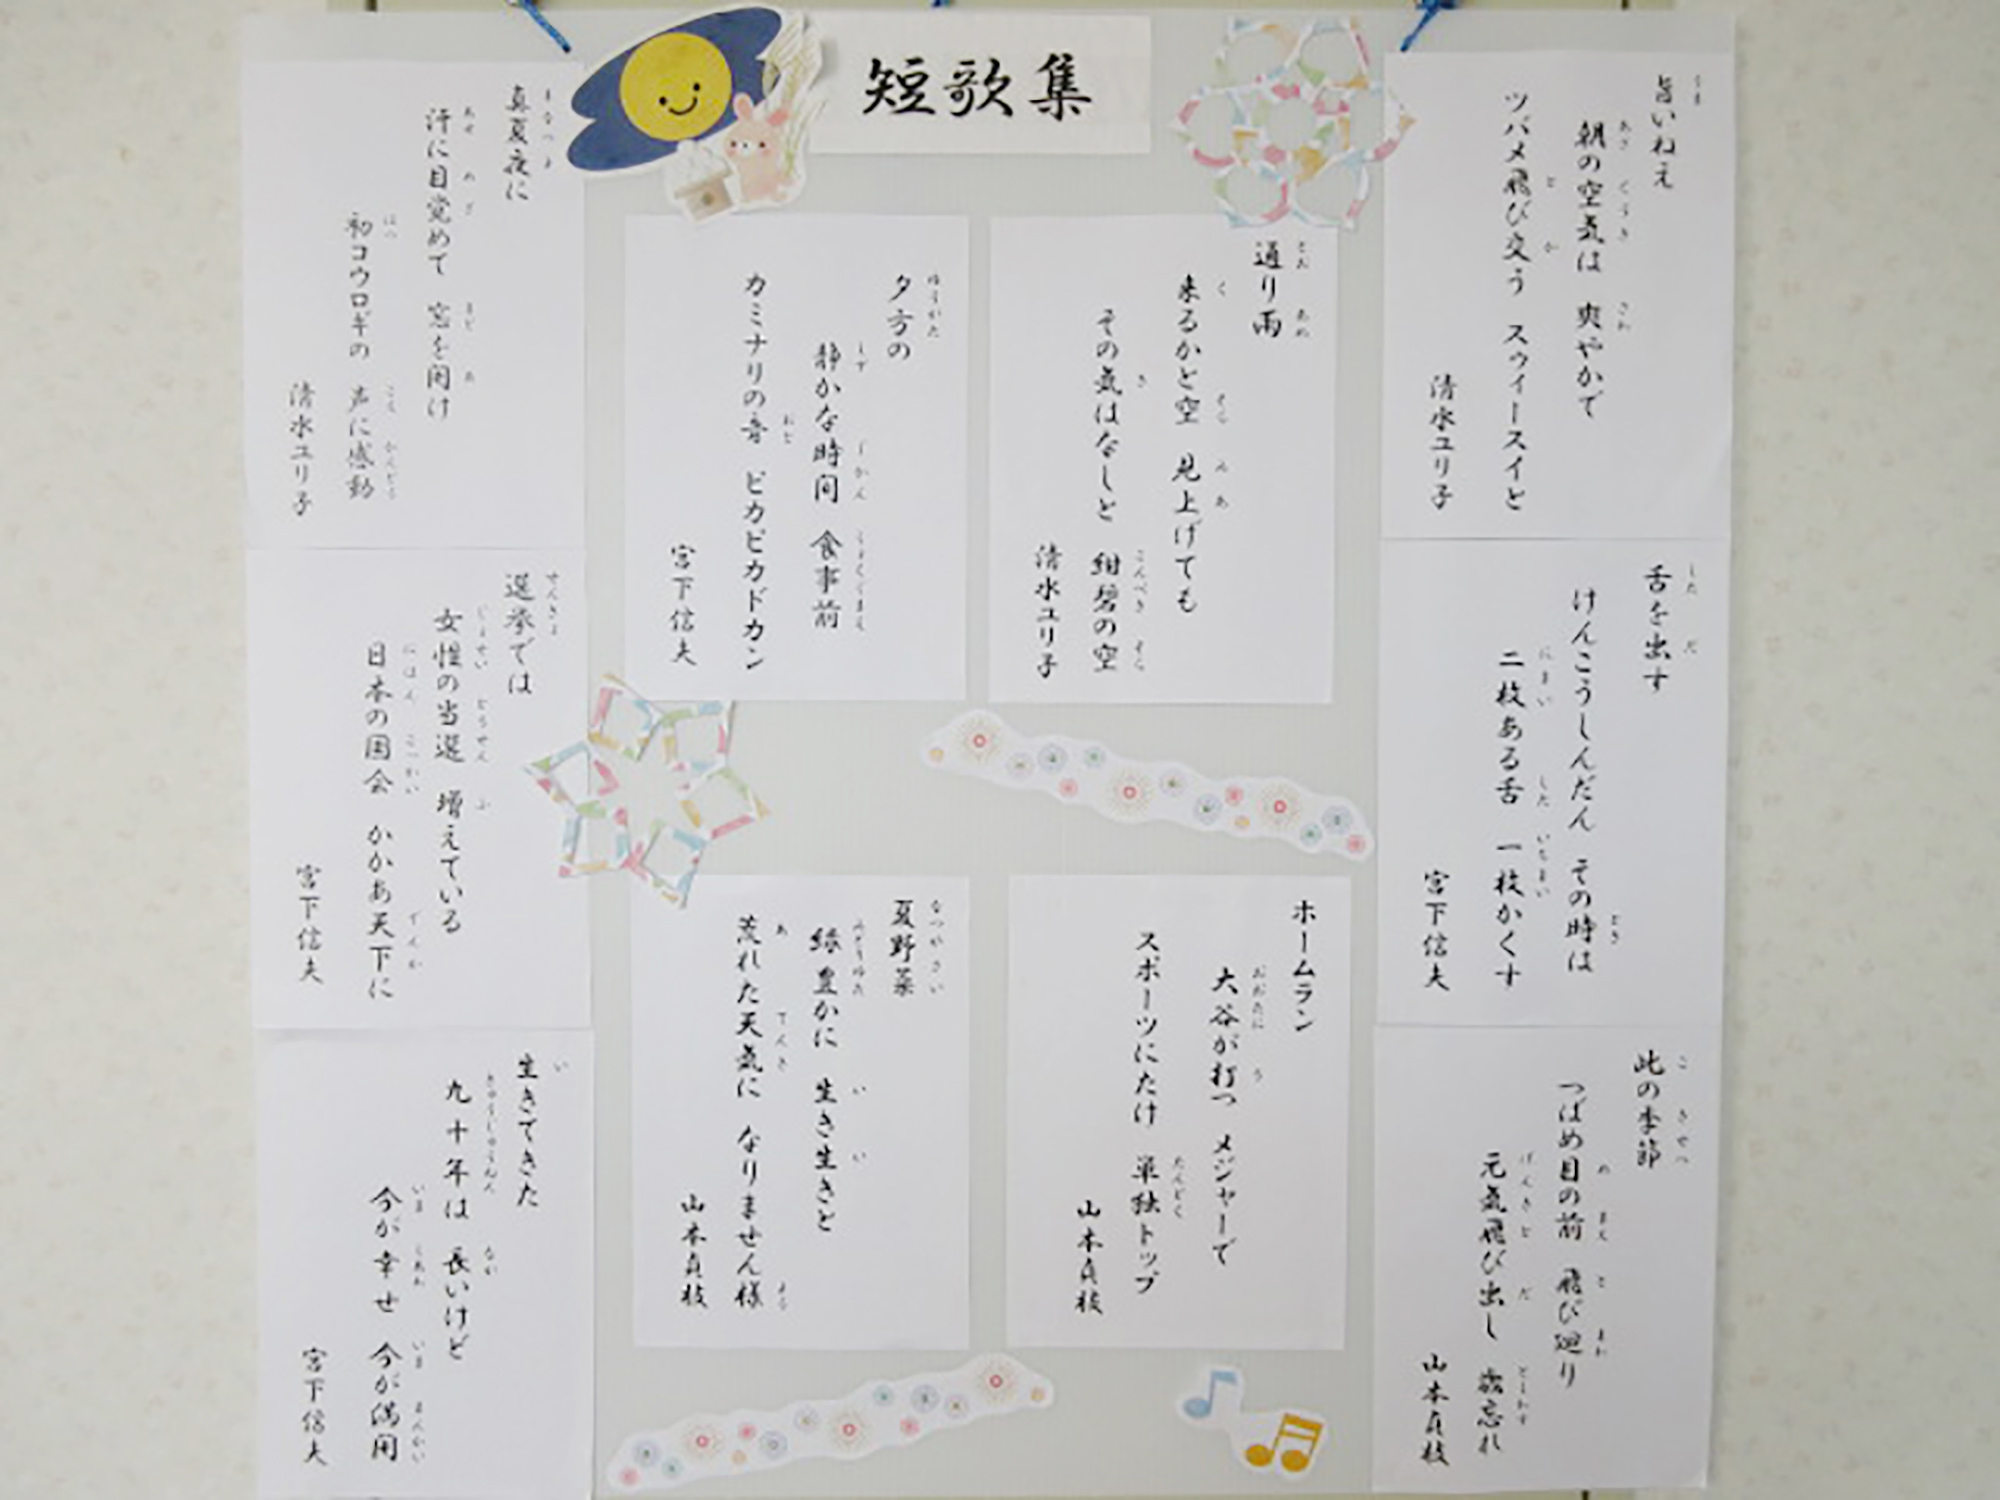 短歌集
旨いねえ
朝の空気は　爽やかで
ツバメ飛び交う　スウィースイと
清水ユリ子
舌を出す
けんこうしんだん　その時は
二枚ある舌　一枚かくす
宮下信夫
此の季節
つばめ目の前　飛び廻り
元気飛び出し　歳忘れ
山本貞枝
通り雨
来るかと空　見上げても
その気はなしと　紺碧の空
清水ユリ子
ホームラン
大谷が打つ　メジャーで
スポーツにたけ　単独トップ
山本貞枝
夕方の
静かな時間　食事前
カミナリの音　ピカピカドカン
宮下信夫
夏野菜
緑豊かに　生き生きと
荒れた天気に　なりません様
山本貞枝
真夏夜に
汗に目覚めて　窓を開け
初コウロギの　声に感動
清水ユリ子
選挙では
女性の当選　増えている
日本の国会　かかあ天下に
宮下信夫
生きてきた
九十年は　長いけど
今が幸せ　今が満開
宮下信夫